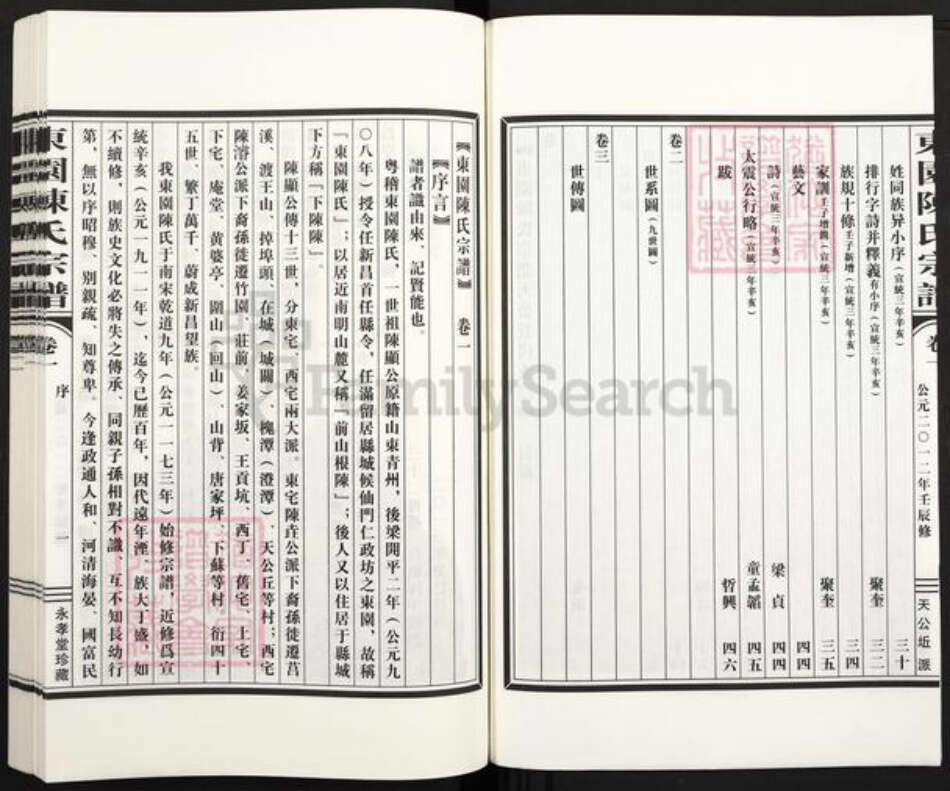 東園陳氏宗譜
卷一
公元二〇一二年壬辰修
天公坵派
姓同族异小序（宣統三年辛亥） 三十
排行字詩并釋義有小序（宣統三年辛亥） 聚奎 三二
族規十條壬子新增（宣統三年辛亥） 三四
家訓壬子增幾（宣統三年辛亥） 聚奎 三五
藝文 四四
詩（宣統三年辛亥） 梁貞 四四
太震公行略（宣統三年辛亥） 童孟韜 四五
跋 哲興 四六
卷二
世系圖（九世圖）
卷三
世傳圖
『東園陳氏宗譜』 卷一
『序言』
譜者識由來、記賢能也。
粵稽東園陳氏，一世祖陳顯公原籍山東青州，後梁開平二年（公元九
〇八年）授令任新昌首任縣令，任滿留居縣城候仙門仁政坊之東園，故稱
「東園陳氏」；以居近南明山麓又稱「前山根陳」；後人又以住居于縣城
下方稱「下陳」。
陳顯公傳十三世，分東宅、西宅兩大派。東宅陳垚公派下裔孫徙遷莒
溪、渡王山、掉埠頭、在城（城關）、槐潭（澄潭）、天公丘等村；西宅
陳漵公派下裔孫徙遷竹園、莊前、姜家坂、王貢坑、西丁、舊宅、上宅、
下宅、庵堂、黃婆亭、圍山（回山）、山背、唐家坪、下蘇等村，衍四十
五世，繁丁萬千，蔚成新昌望族。
我東園陳氏于南宋乾道九年（公元一一七三年）始修宗譜，近修爲宣
統辛亥（公元一九一一年），迄今已歷百年，因代遠年湮，族大丁盛，如
不續修，則族史文化必將失之傳承、同親子孫相對不識、互不知長幼行
第，無以序昭穆、別親疏、知尊卑。今逢政通人和、河清海晏、國富民
東園陳氏宗譜
卷一
序
一
永孝堂珍藏
FamilySearch